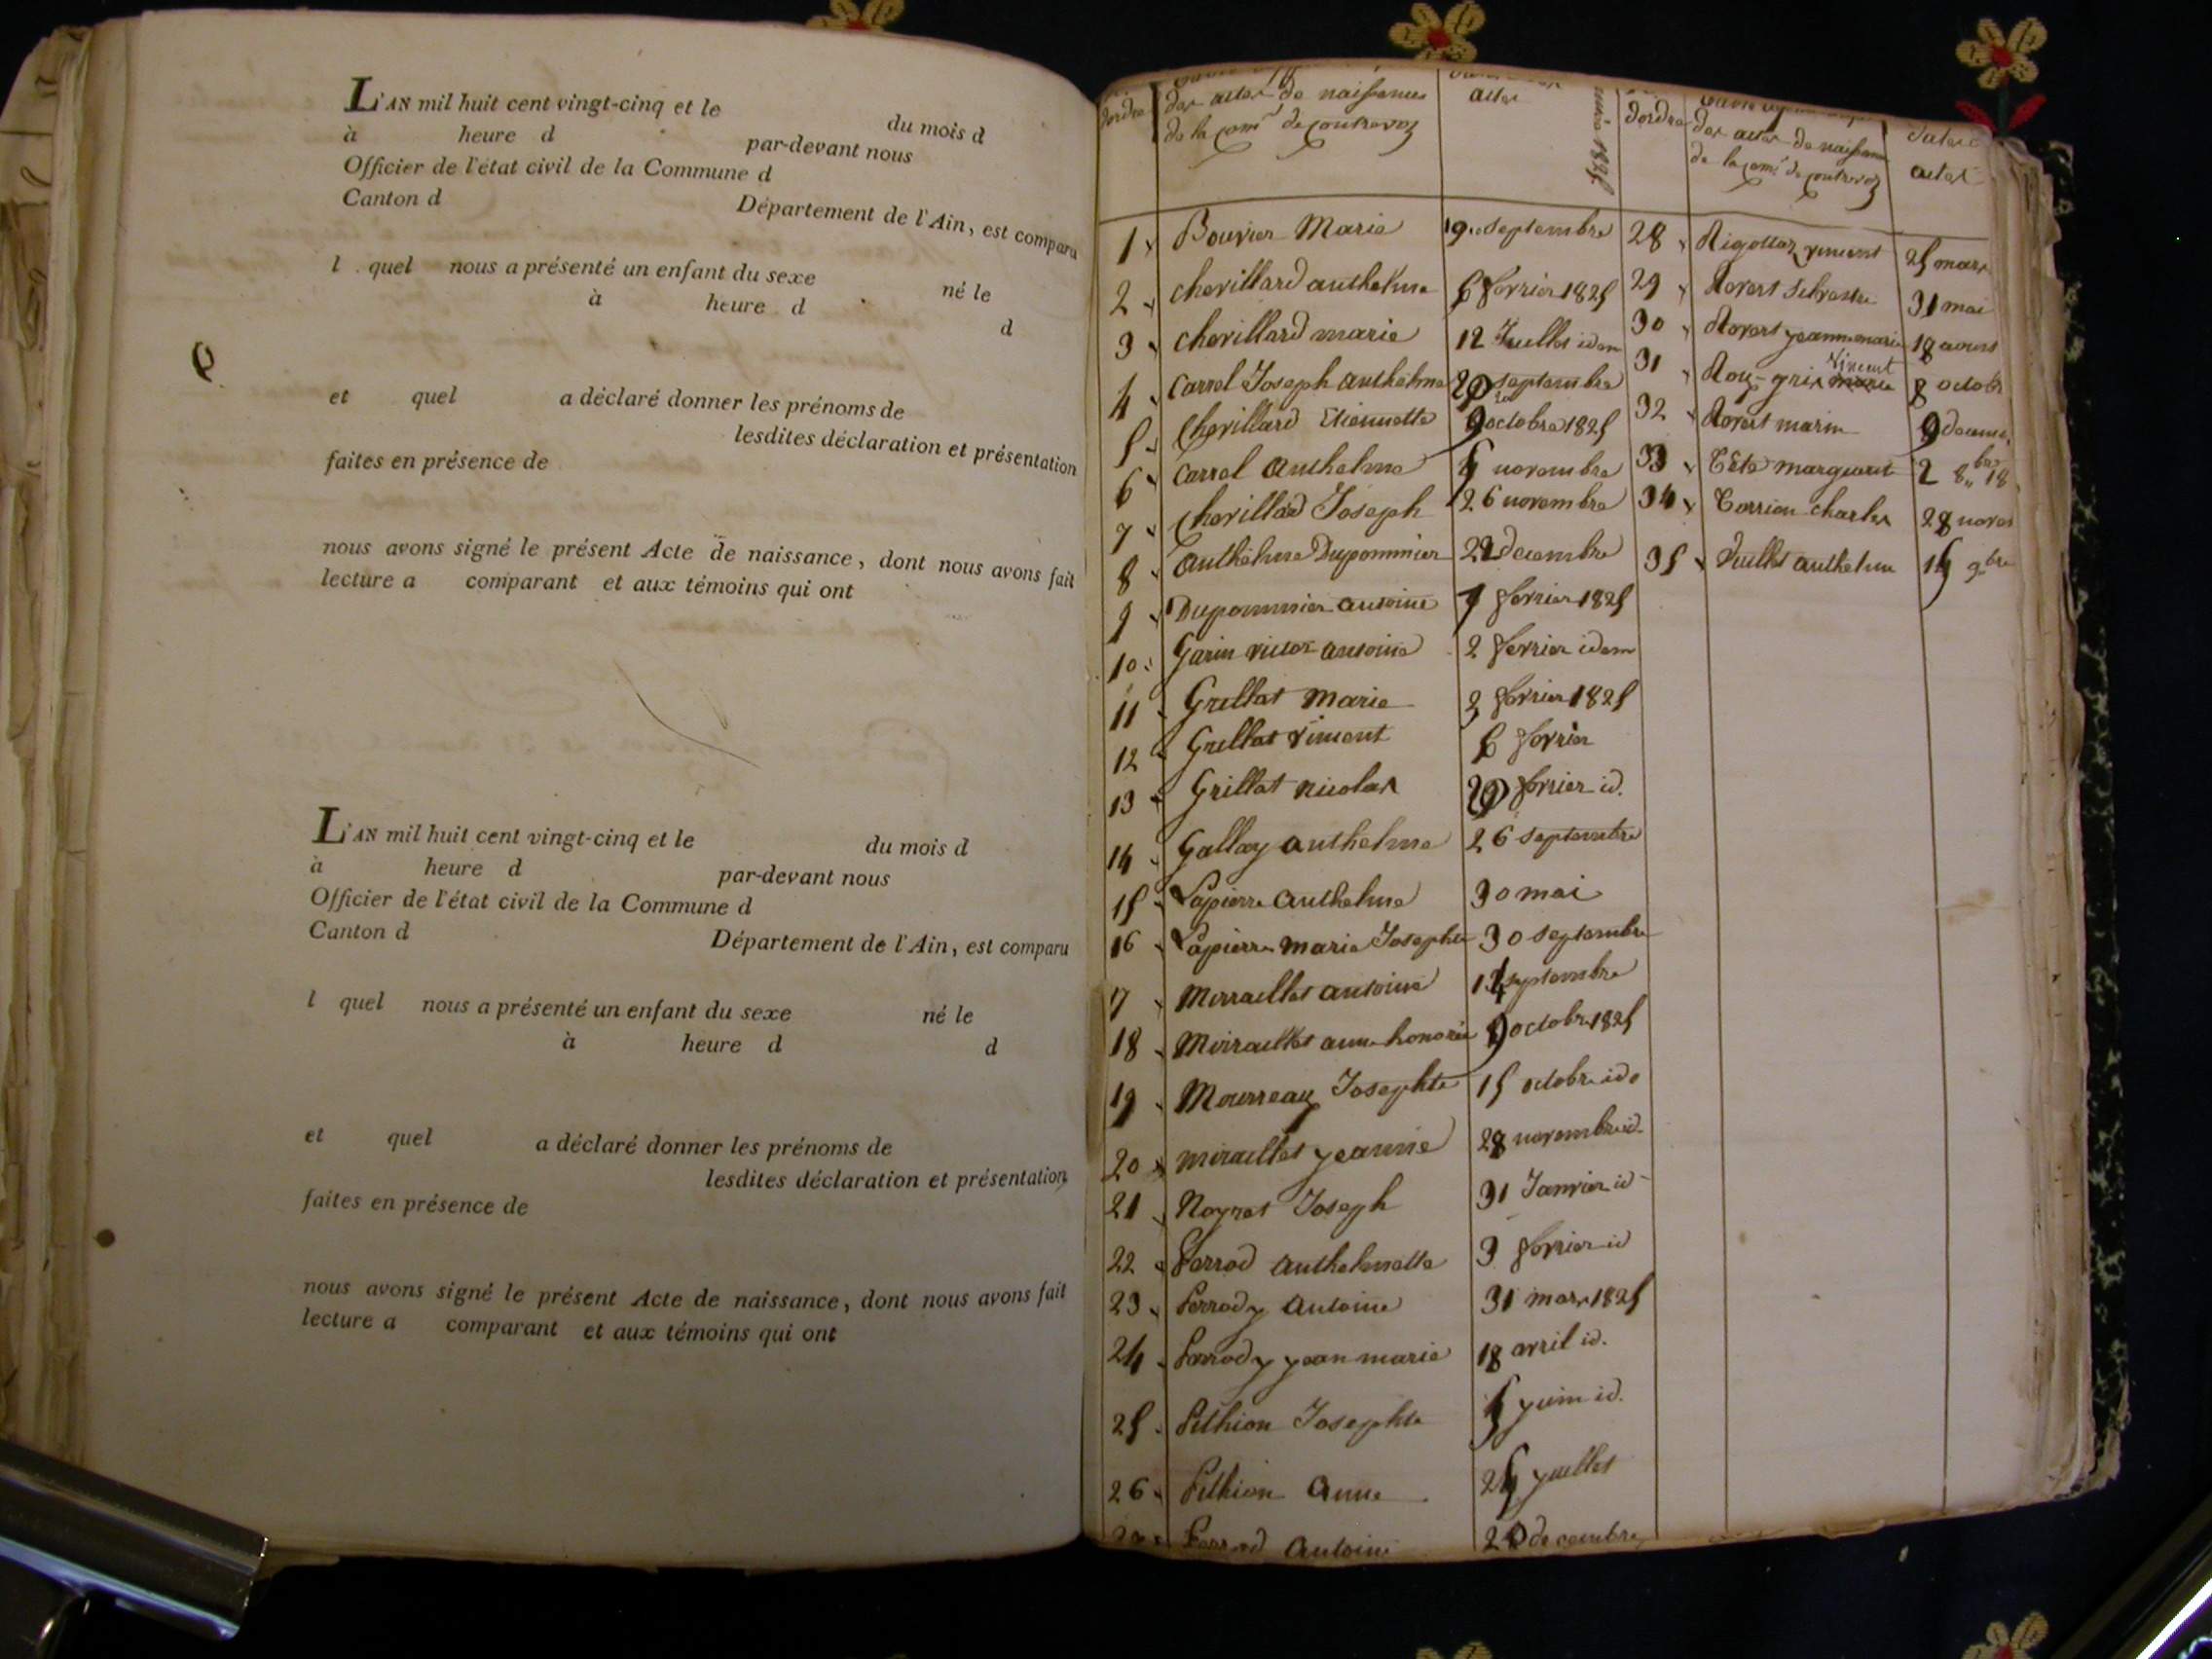 L'AN mil huit cent vingt-cinq et le du mois d
à heure d par-devant nous
Officier de l'état civil de la Commune d
Canton d Département de l'Ain, est comparu
l quel nous a présenté un enfant du sexe né le
à heure d d
et quel a déclaré donner les prénoms de
lesdites déclaration et présentation
faites en présence de
nous avons signé le présent Acte de naissance, dont nous avons fait
lecture a comparant et aux témoins qui ont
L'AN mil huit cent vingt-cinq et le du mois d
à heure d par-devant nous
Officier de l'état civil de la Commune d
Canton d Département de l'Ain, est comparu
l quel nous a présenté un enfant du sexe né le
à heure d d
et quel a déclaré donner les prénoms de
lesdites déclaration et présentation
faites en présence de
nous avons signé le présent Acte de naissance, dont nous avons fait
lecture a comparant et aux témoins qui ont
dordre des actes de naissances actes
de la com. de Contrevoz
1 Bouvier Marie 19 septembre
2 chevillard anthelme 6 fevrier 1825
3 chevillard marie 12 Juillet idem
4 Carrel Joseph anthelme 20 septembre
5 Chevillard Etiennette 9 octobre 1825
6 Carrel anthelme 5 novembre
7 Chevillard Joseph 26 novembre
8 anthelme Dupommier 22 decembre
9 Dupommier antoine 1 fevrier 1825
10 Garin victor antoine 2 fevrier idem
11 Grillat Marie 2 fevrier 1825
12 Grillat Vincent 6 fevrier
13 Grillat nicolas 20 fevrier id.
14 Gallay anthelme 26 septembre
15 Lapierre anthelme 30 mai
16 Lapierre marie Josephte 30 septembre
17 Mirraillet antoine septembre
18 Mirraillet anne honorie octobre 1825
19 Mourreau Josephte 15 octobre ido
20 miraillet jeanne 28 novembre id.
21 Noyret Joseph 31 Janvier id
22 Perrod anthelmette 3 fevrier id
23 Perrody Antoine 31 mars 1825
24 Perrody jean marie 18 avril id.
25 Pithion Josephte 5 juin id.
26 Pithion Anne 25 juillet
Perrod Antoine decembre
dordre des actes de naissance actes
de la com. de Contrevoz
28 Rigollaz vincent 25 mars
29 Revert Silvestre 31 mai
30 Revert jeanne marie 18 aoust
31 Roy-grix Vincent 8 octob
32 Revert marin 9
33 Tete marguerit 2 8bre 18
34 Terrion charles 28 novem
35 Juillet anthelme 15 9bre